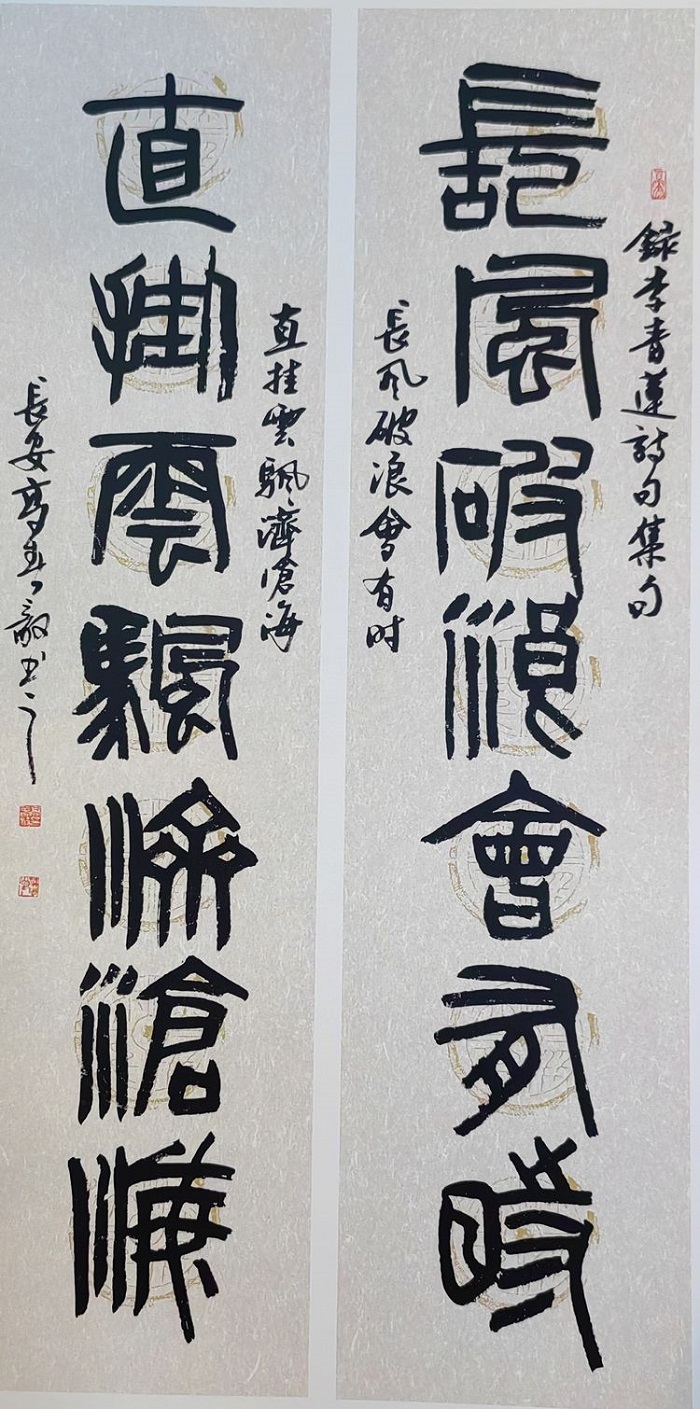 録李青蓮詩句集句
長風破浪會有時
長风破浪會有时
直挂雲颿濟滄海
直掛雲颿濟滄海
長安